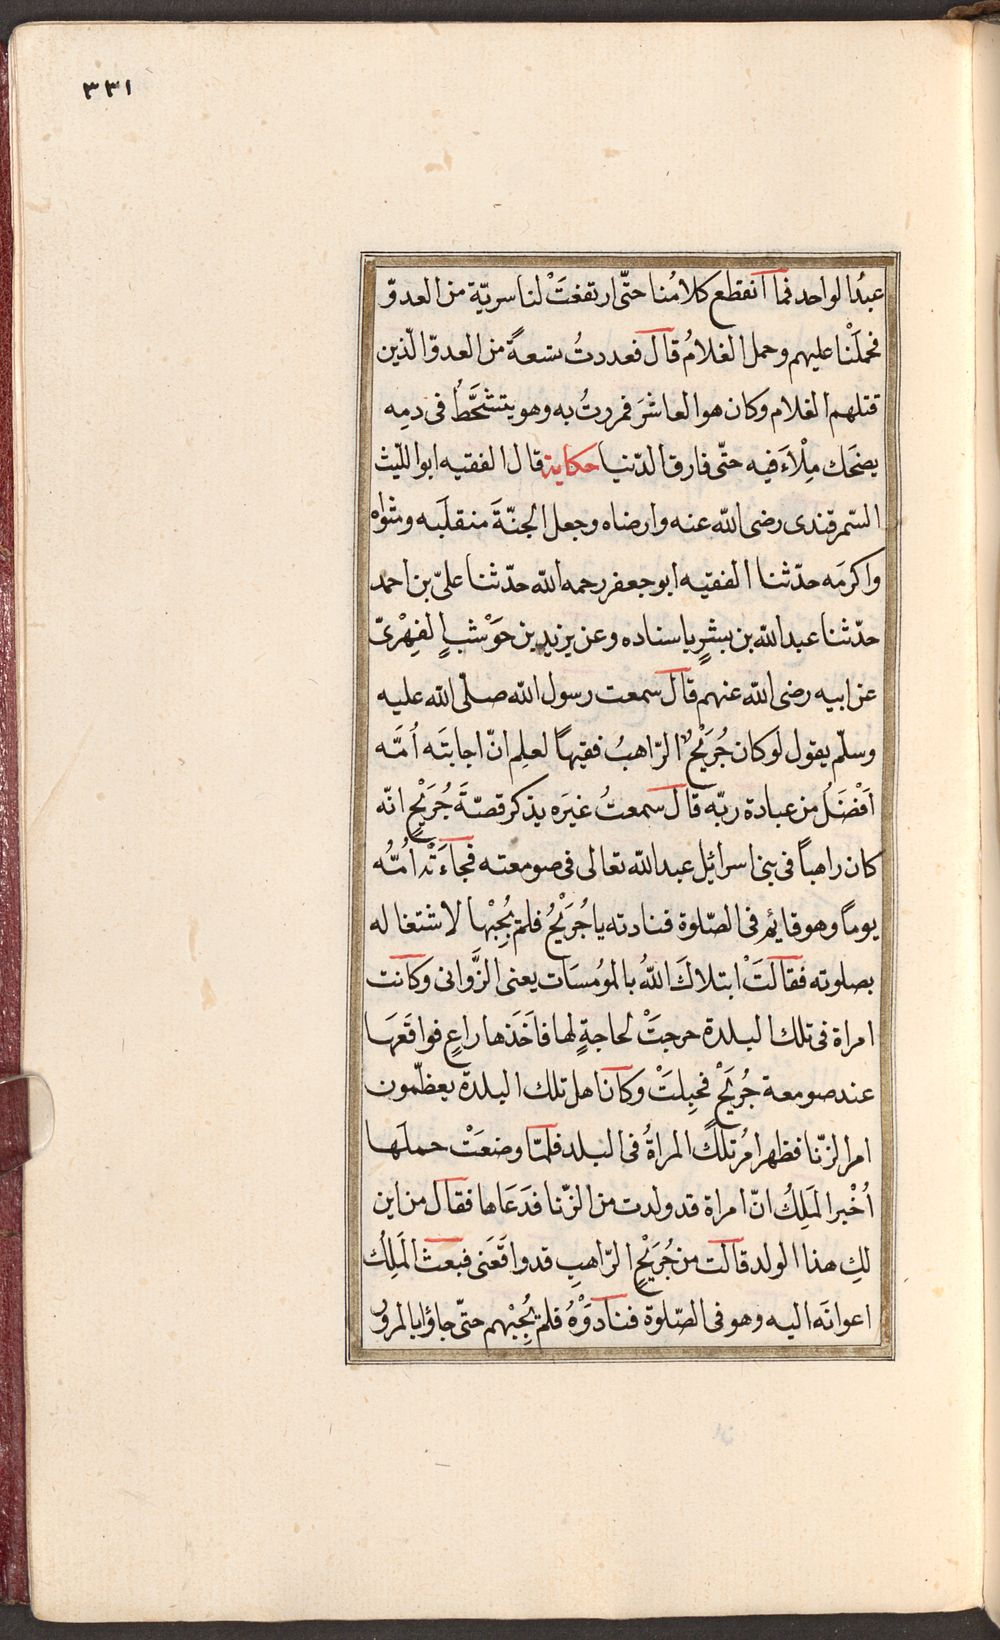 ٣٣١
عبدُ الواحد فما انقطع كلامُنا حتّى ارتفعَتْ لنا سريّة من العدوّ
فحملْنا عليهم وحمل الغلامُ قال فعددتُ تسعةً من العدوّ الّذين
قتلهم الغلام وكان هو العاشرَ فمررتُ به وهو يتشحَّطُ فى دمِه
يضحك مِلْأَ فيه حتّى فارق الدّنيا حكاية قال الفقيه ابو اللّيث
السّمرقندى رضى اللّه عنه وارضاه وجعل الجنّةَ منقلَبه ومثواه
واكرمَه حدّثنا الفقيه ابو جعفر رحمه اللّه حدّثنا علىّ بن احمد
حدّثنا عبد اللّه بن بشرٍ باسناده وعن يزيد بن حَوْشبٍ الفِهْرىّ
عن ابيه رضى اللّه عنهم قال سمعت رسول اللّه صلّى اللّه عليه
وسلّم يقول لو كان جُرَيْجٌ الرّاهبُ فقيهًا لعلِم انّ اجابتَه اُمَّه
اَفْضَلُ من عبادة ربّه قال سمعتُ غيرَه يذكر قصّةَ جُرَيْجٍ انّه
كان راهباً فى بنى اسرائيل عبد اللّه تعالى فى صومعته فجاءَتْه اُمُّه
يوماً وهو قايم فى الصّلوة فنادته يا جُرَيْجُ فلم يُجِبْها لاشتغاله
بصلوته فقالَتْ ابتلاكَ اللّهُ بالمومُسَات يعنى الزَّوانى وكانت
امراة فى تلك البلدة خرجتْ لحاجةٍ لها فاَخَذها راعٍ فواقَعَها
عند صومعة جُرَيْجٍ فحبِلتْ وكان اهل تلك البلدة يعظّمون
امر الزّنا فظهر امرُ تلك المراةُ فى البلد فلمّا وضعَتْ حملَها
اُخْبر المَلِكُ انّ امراة قد ولدت من الزّنا فدَعَاها فقال من اين
لكِ هذا الولد قالت من جُرَيْجٍ الرّاهبِ قد واقَعَنى فبعث المَلِكُ
اعوانَه اليه وهو فى الصّلوة فنادَوْهُ فلم يُجِبْهم حتّى جاؤا بالمرورِ